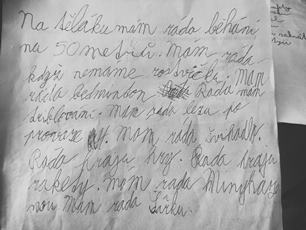 Na těláku mám ráda běhání
na 50 metrů. Mám ráda
když nemáme rozcvičku. Mám
ráda bedminton Ráda mám
driblování. Mám ráda lezu po
provaze. Mám ráda švihadlo.
Ráda hraju hry. Ráda hraju
rakety. Mám ráda
mou Mám ráda Šárku.